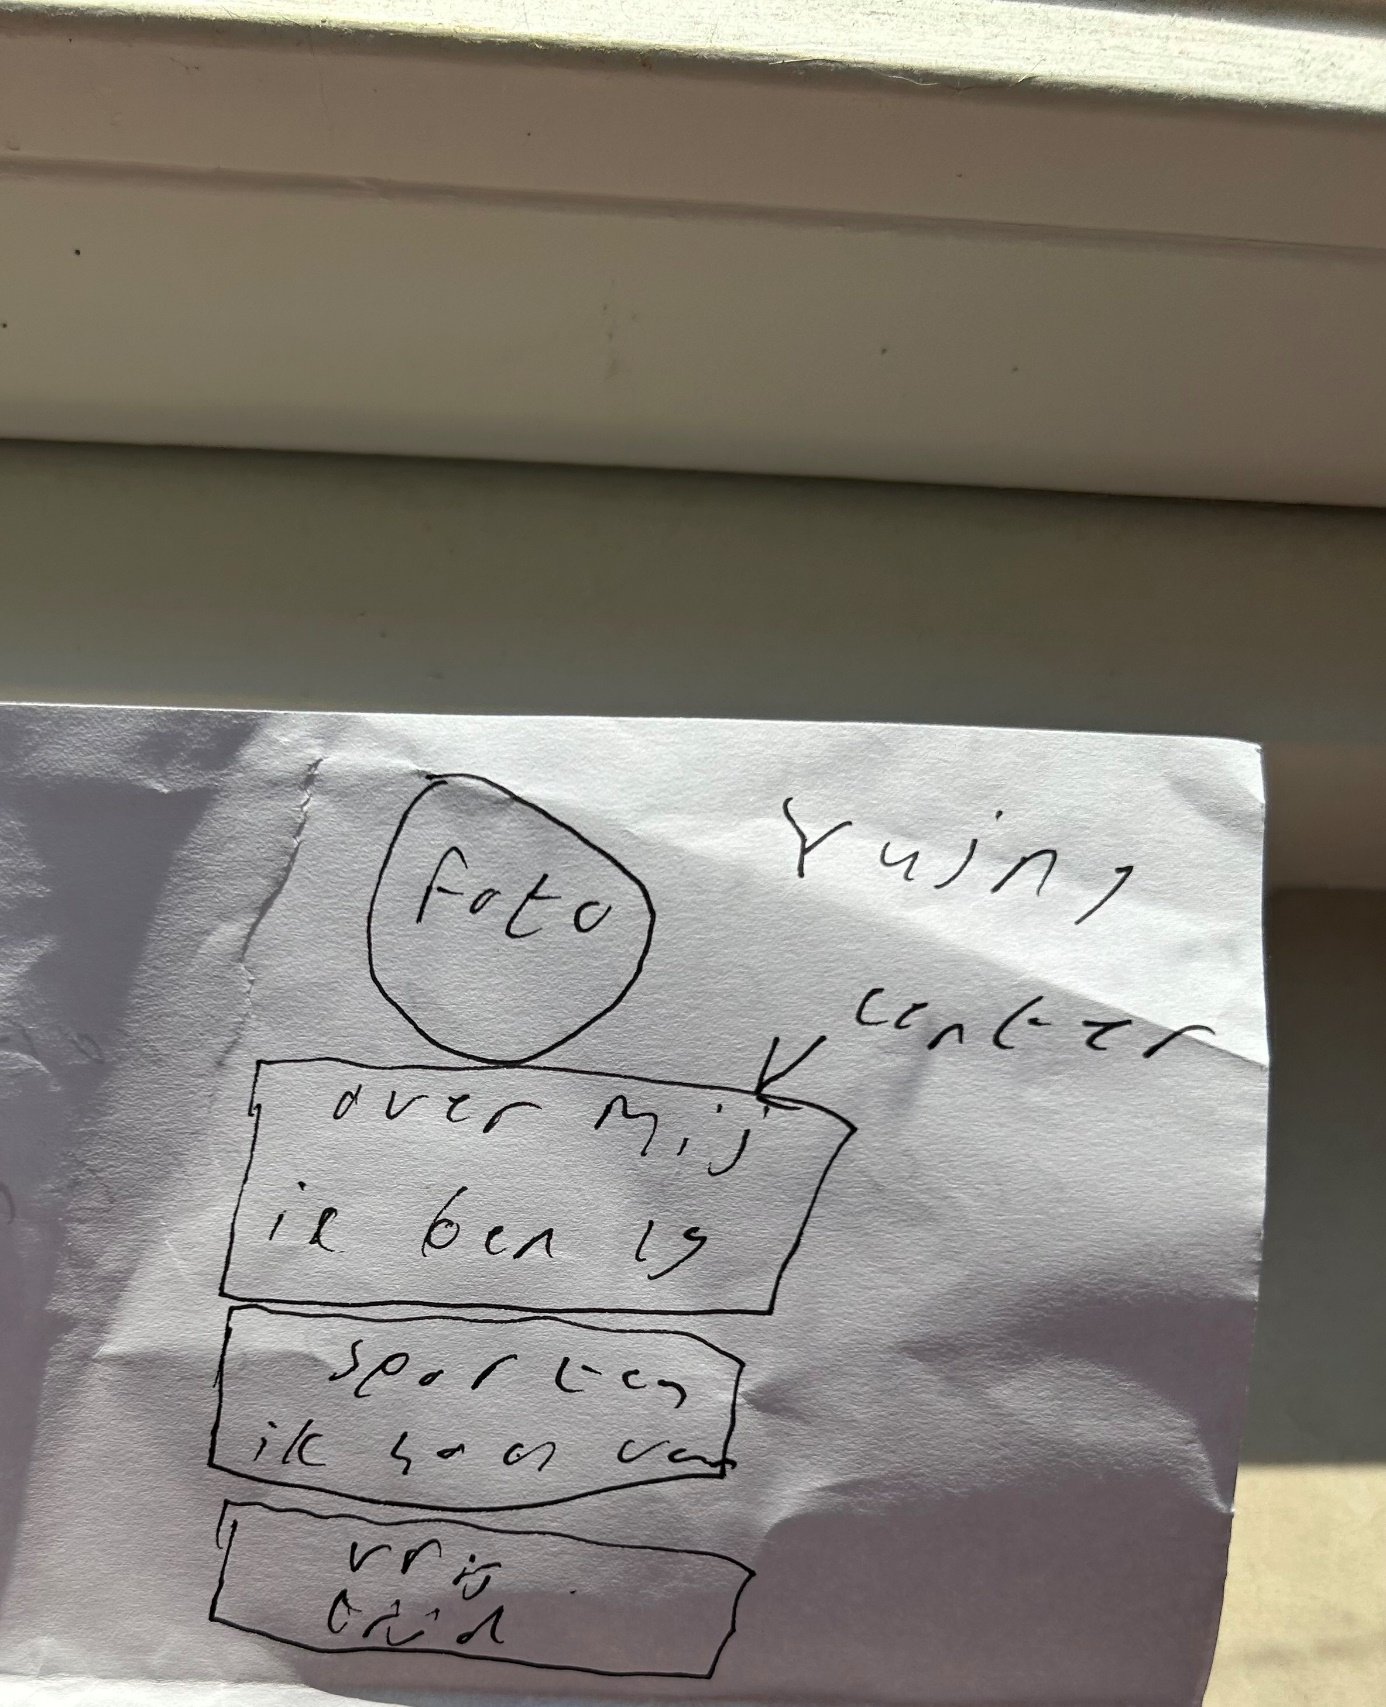 foto
Yujny
center
over mij
ik ben 19
sporten
ik hou van
vrij
tijd